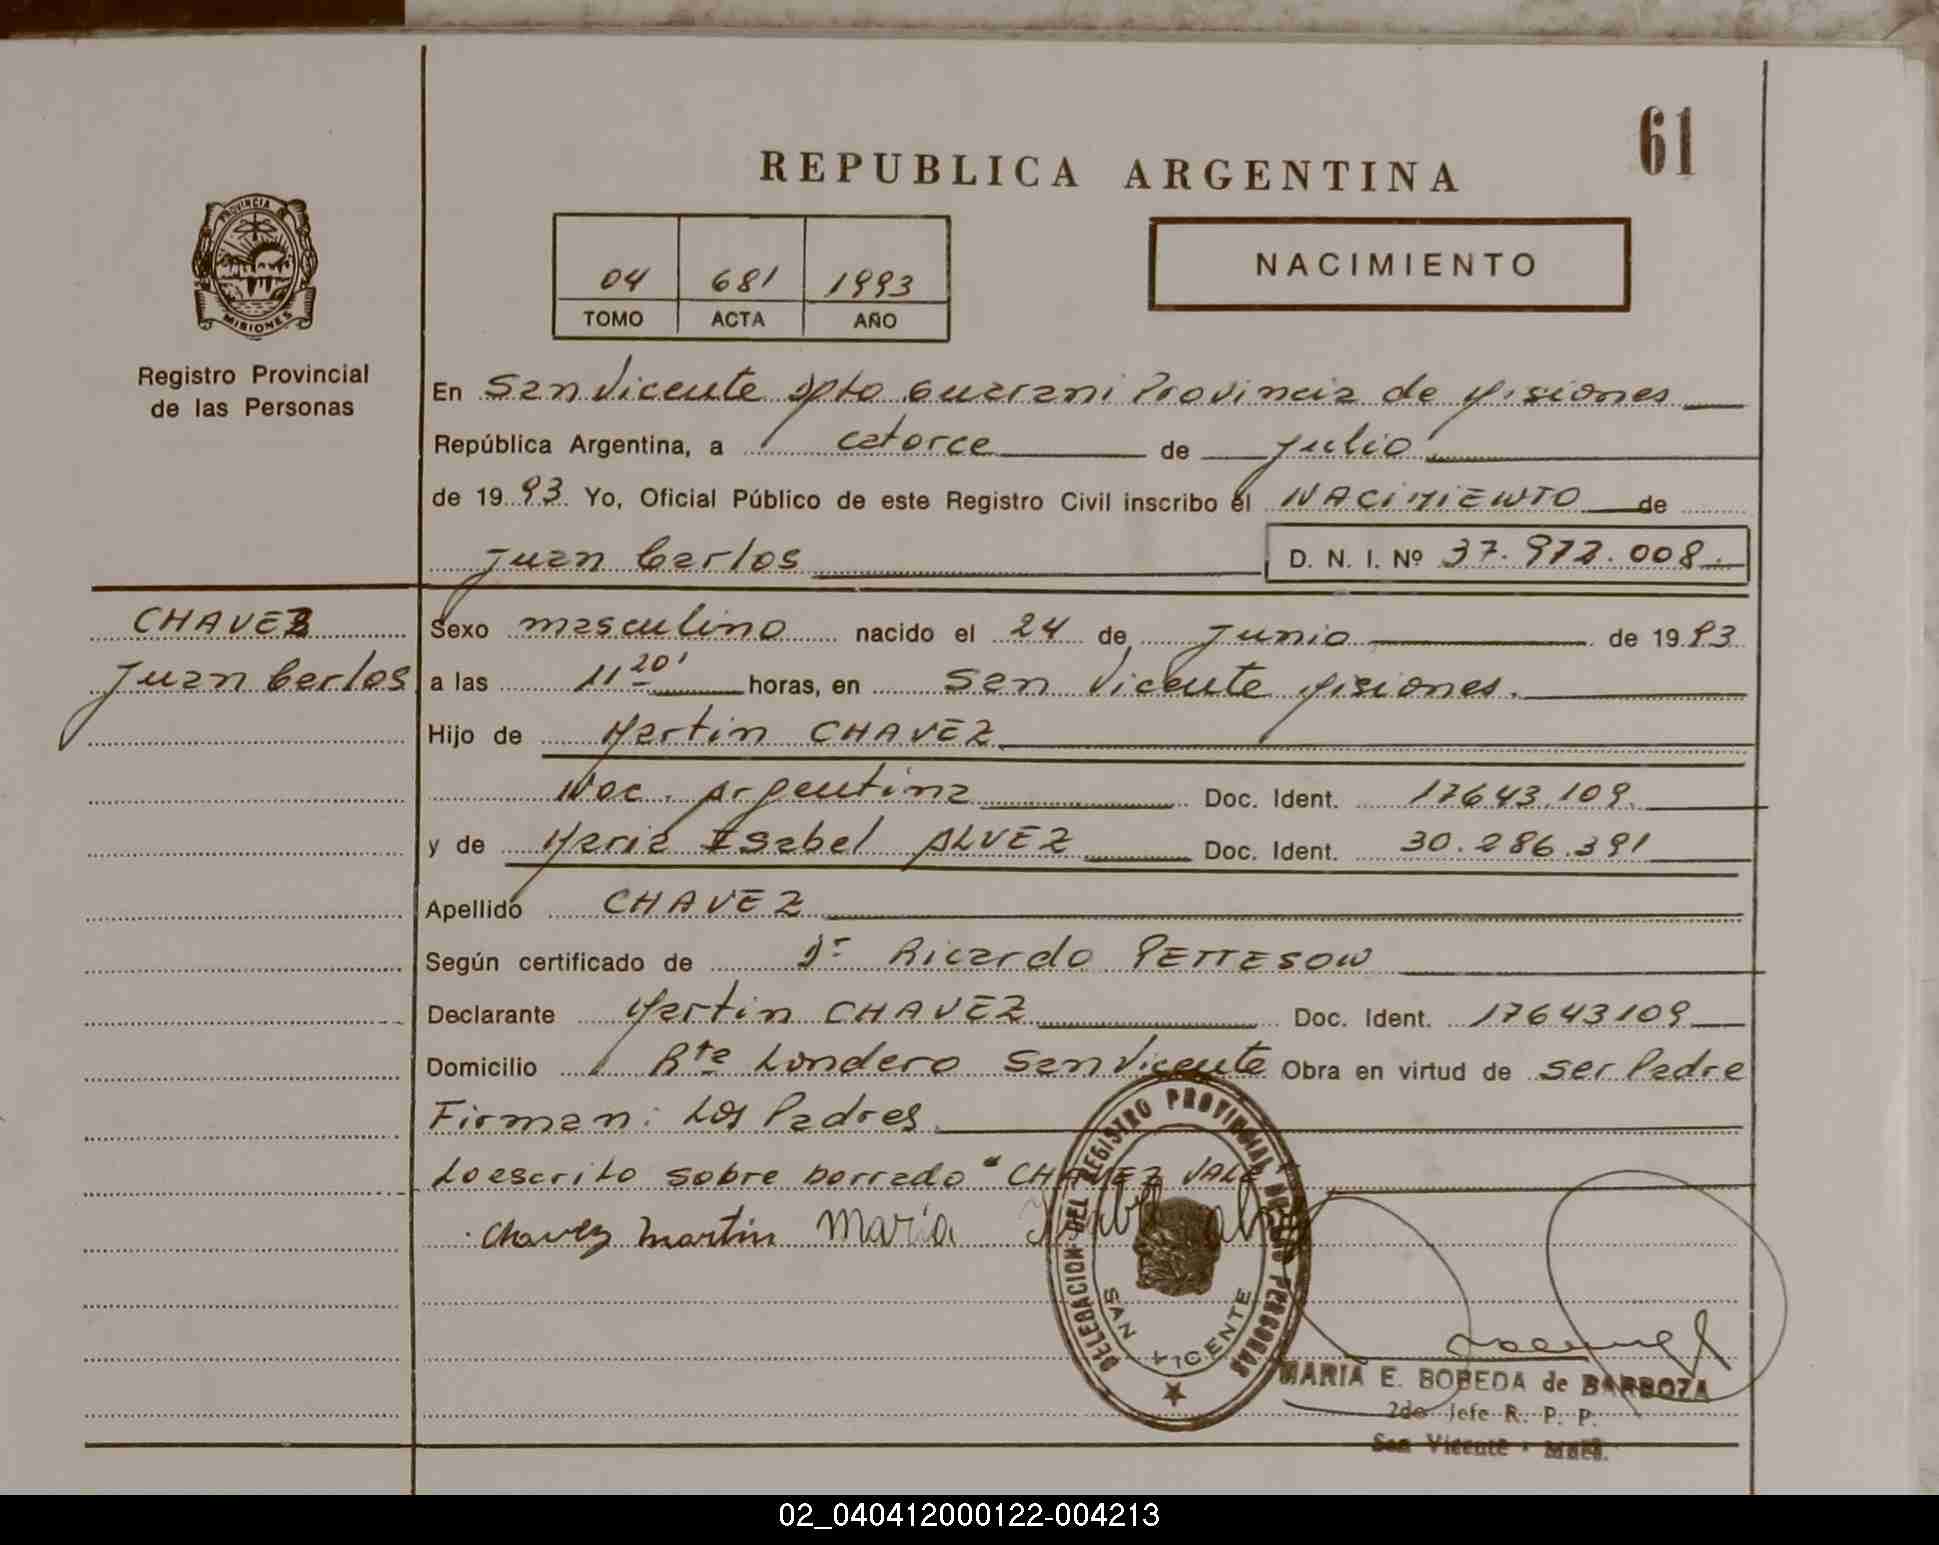 61
REPUBLICA ARGENTINA
PROVINCIA DE
MISIONES
Registro Provincial
de las Personas
04 681 1993
TOMO ACTA AÑO
NACIMIENTO
En San Vicente Dpto Guarani Provincia de Misiones
República Argentina, a catorce de Julio
de 1993 Yo, Oficial Público de este Registro Civil inscribo el NACIMIENTO de
Juan Carlos D. N. I. Nº 37.972.008.
CHAVEZ
Juan Carlos
Sexo masculino nacido el 24 de Junio de 1993
a las 11 20' horas, en San Vicente Misiones.
Hijo de Martin CHAVEZ
Nac. Argentina Doc. Ident. 17643.109.
y de Maria Isabel ALVEZ Doc. Ident. 30.286.391
Apellido CHAVEZ
Según certificado de Dr Ricardo PETTESON
Declarante Martin CHAVEZ Doc. Ident. 17643109
Domicilio Rta Londero San Vicente Obra en virtud de ser Padre
Firman: Los Padres
Lo escrito sobre borrado "CHAVEZ VALE"
Chavez Martin Maria
DELEGACION DEL REGISTRO PROVINCIAL DE LAS PERSONAS
SAN VICENTE
MARIA E. BOBEDA de BARBOZA
2do Jefe R. P. P.
San Vicente - Mnes.
02_040412000122-004213